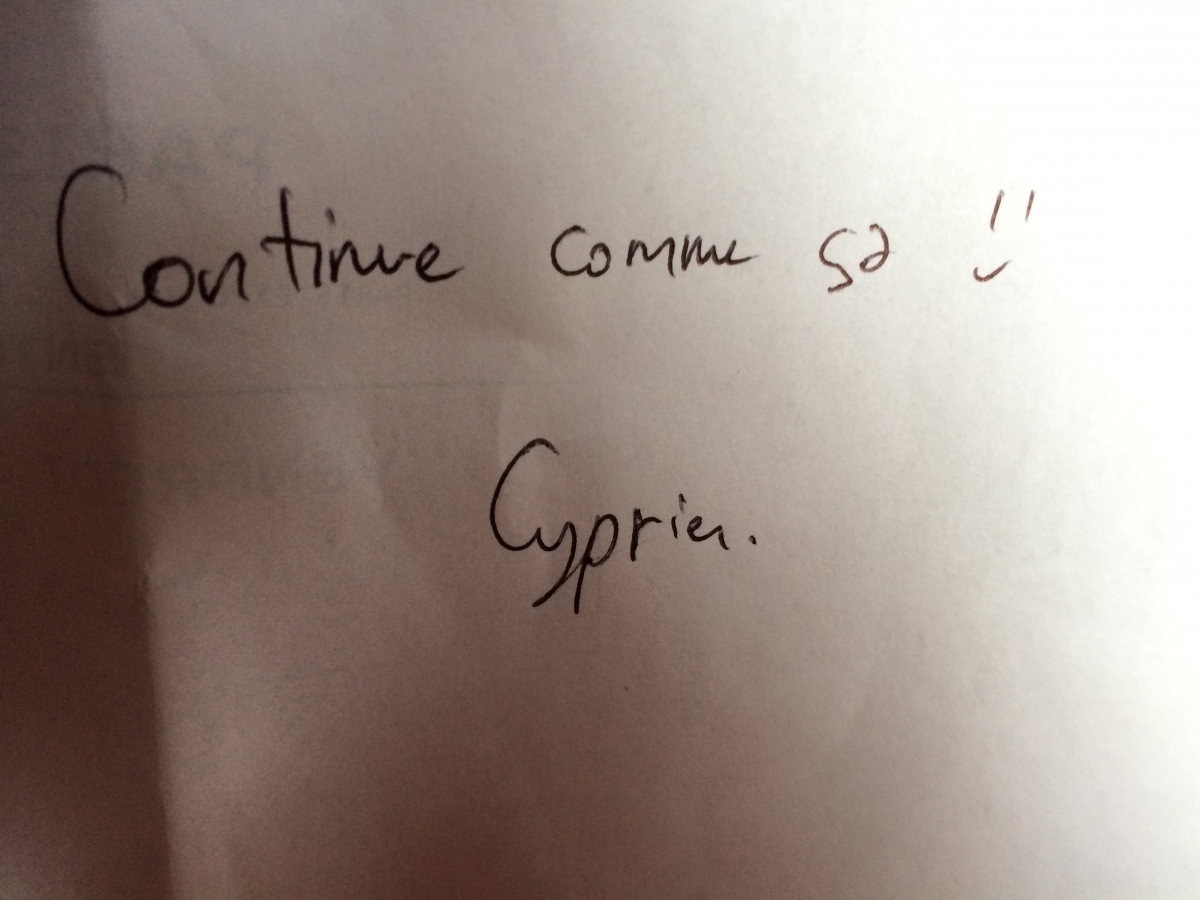 Continue comme ça !!
Cyprien.